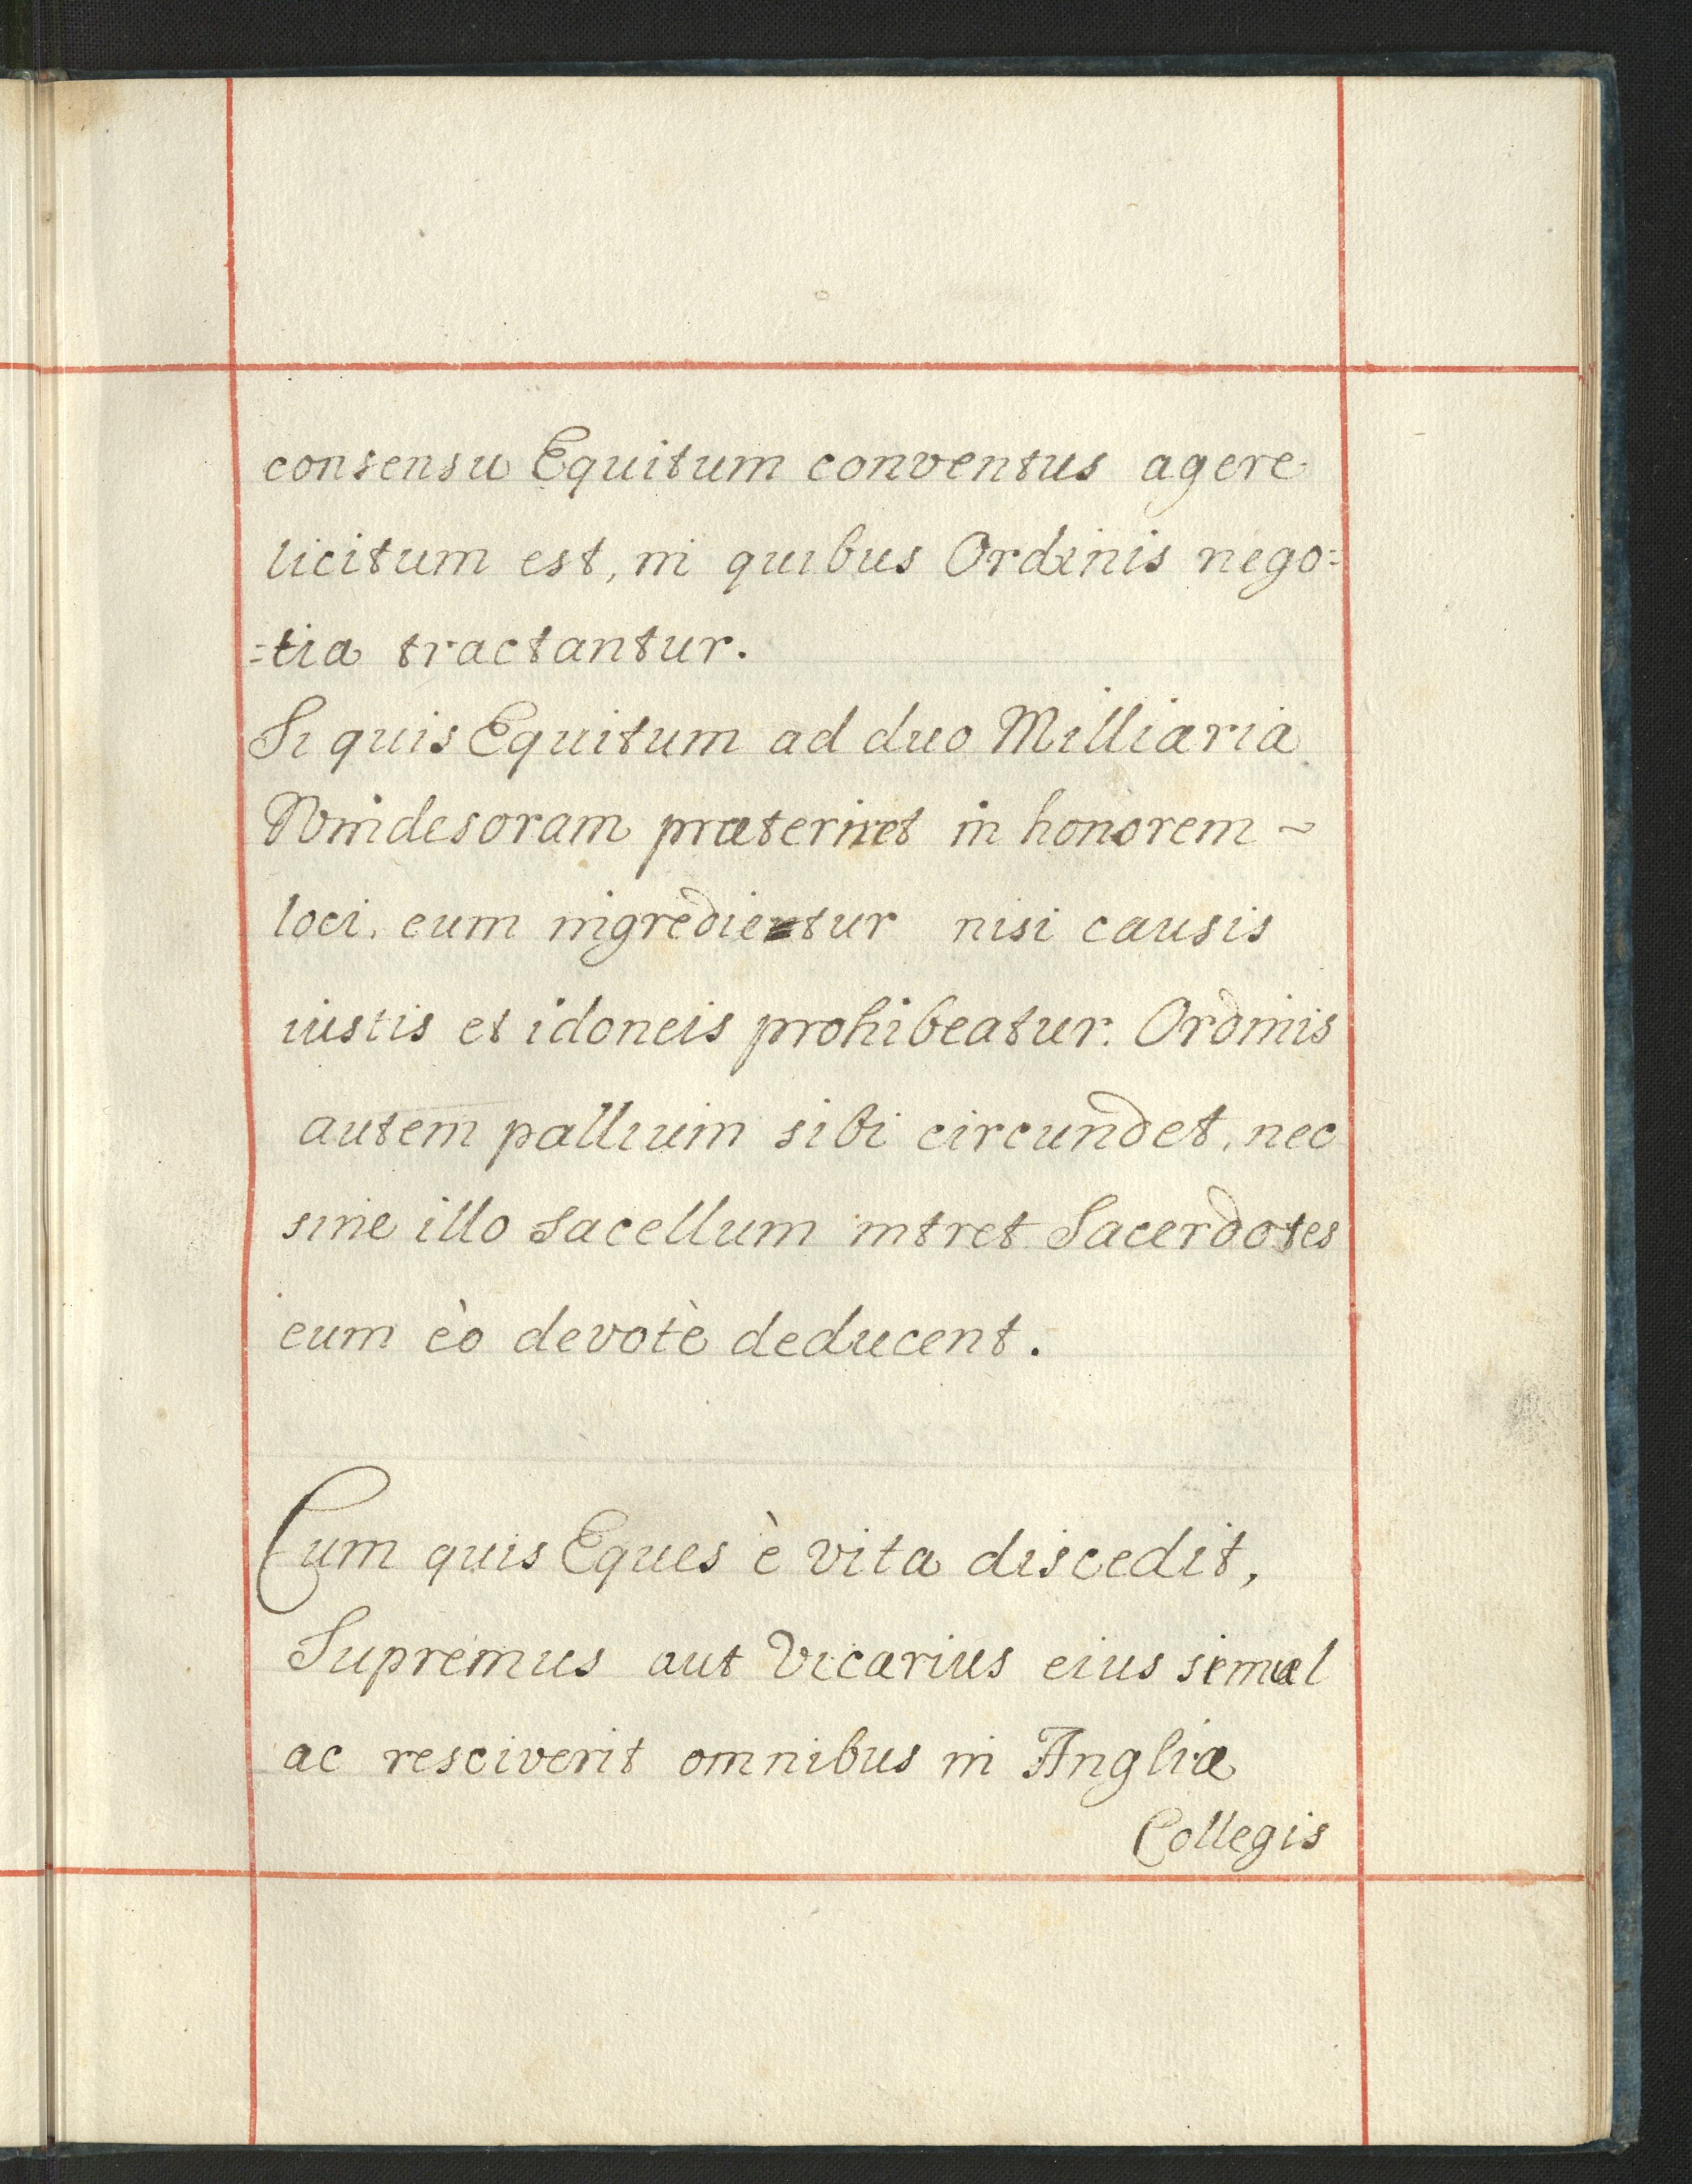 consensu Equitum conventus agere
licitum est, in quibus Ordinis nego=
=tia tractantur.
Si quis Equitum ad duo Milliaria
Windesoram præteriret in honorem ~
loci. eum ingredietur nisi causis
iustis et idoneis prohibeatur. Ordinis
autem pallium sibi circundet, nec
sine illo sacellum intret Sacerdotes
eum èo devotè deducent.
Cum quis Eques è vita discedit,
Supremus aut Vicarius eius simul
ac resciverit omnibus in Angliæ
Collegis